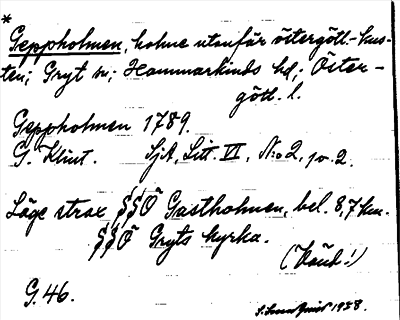 *
Geppholmen, holme utanför östergötl.-kus-
ten; Gryt sn; Hammarkinds hd; Öster-
götl. l.
Geppholmen 1789.
G. Klint. SjA, Litt. VI, No 2, 
Läge strax §§Ö Gastholmen, bel. 8,7 km.
§§Ö Gryts kyrka.
(Känt!)
G. 46.
1928.